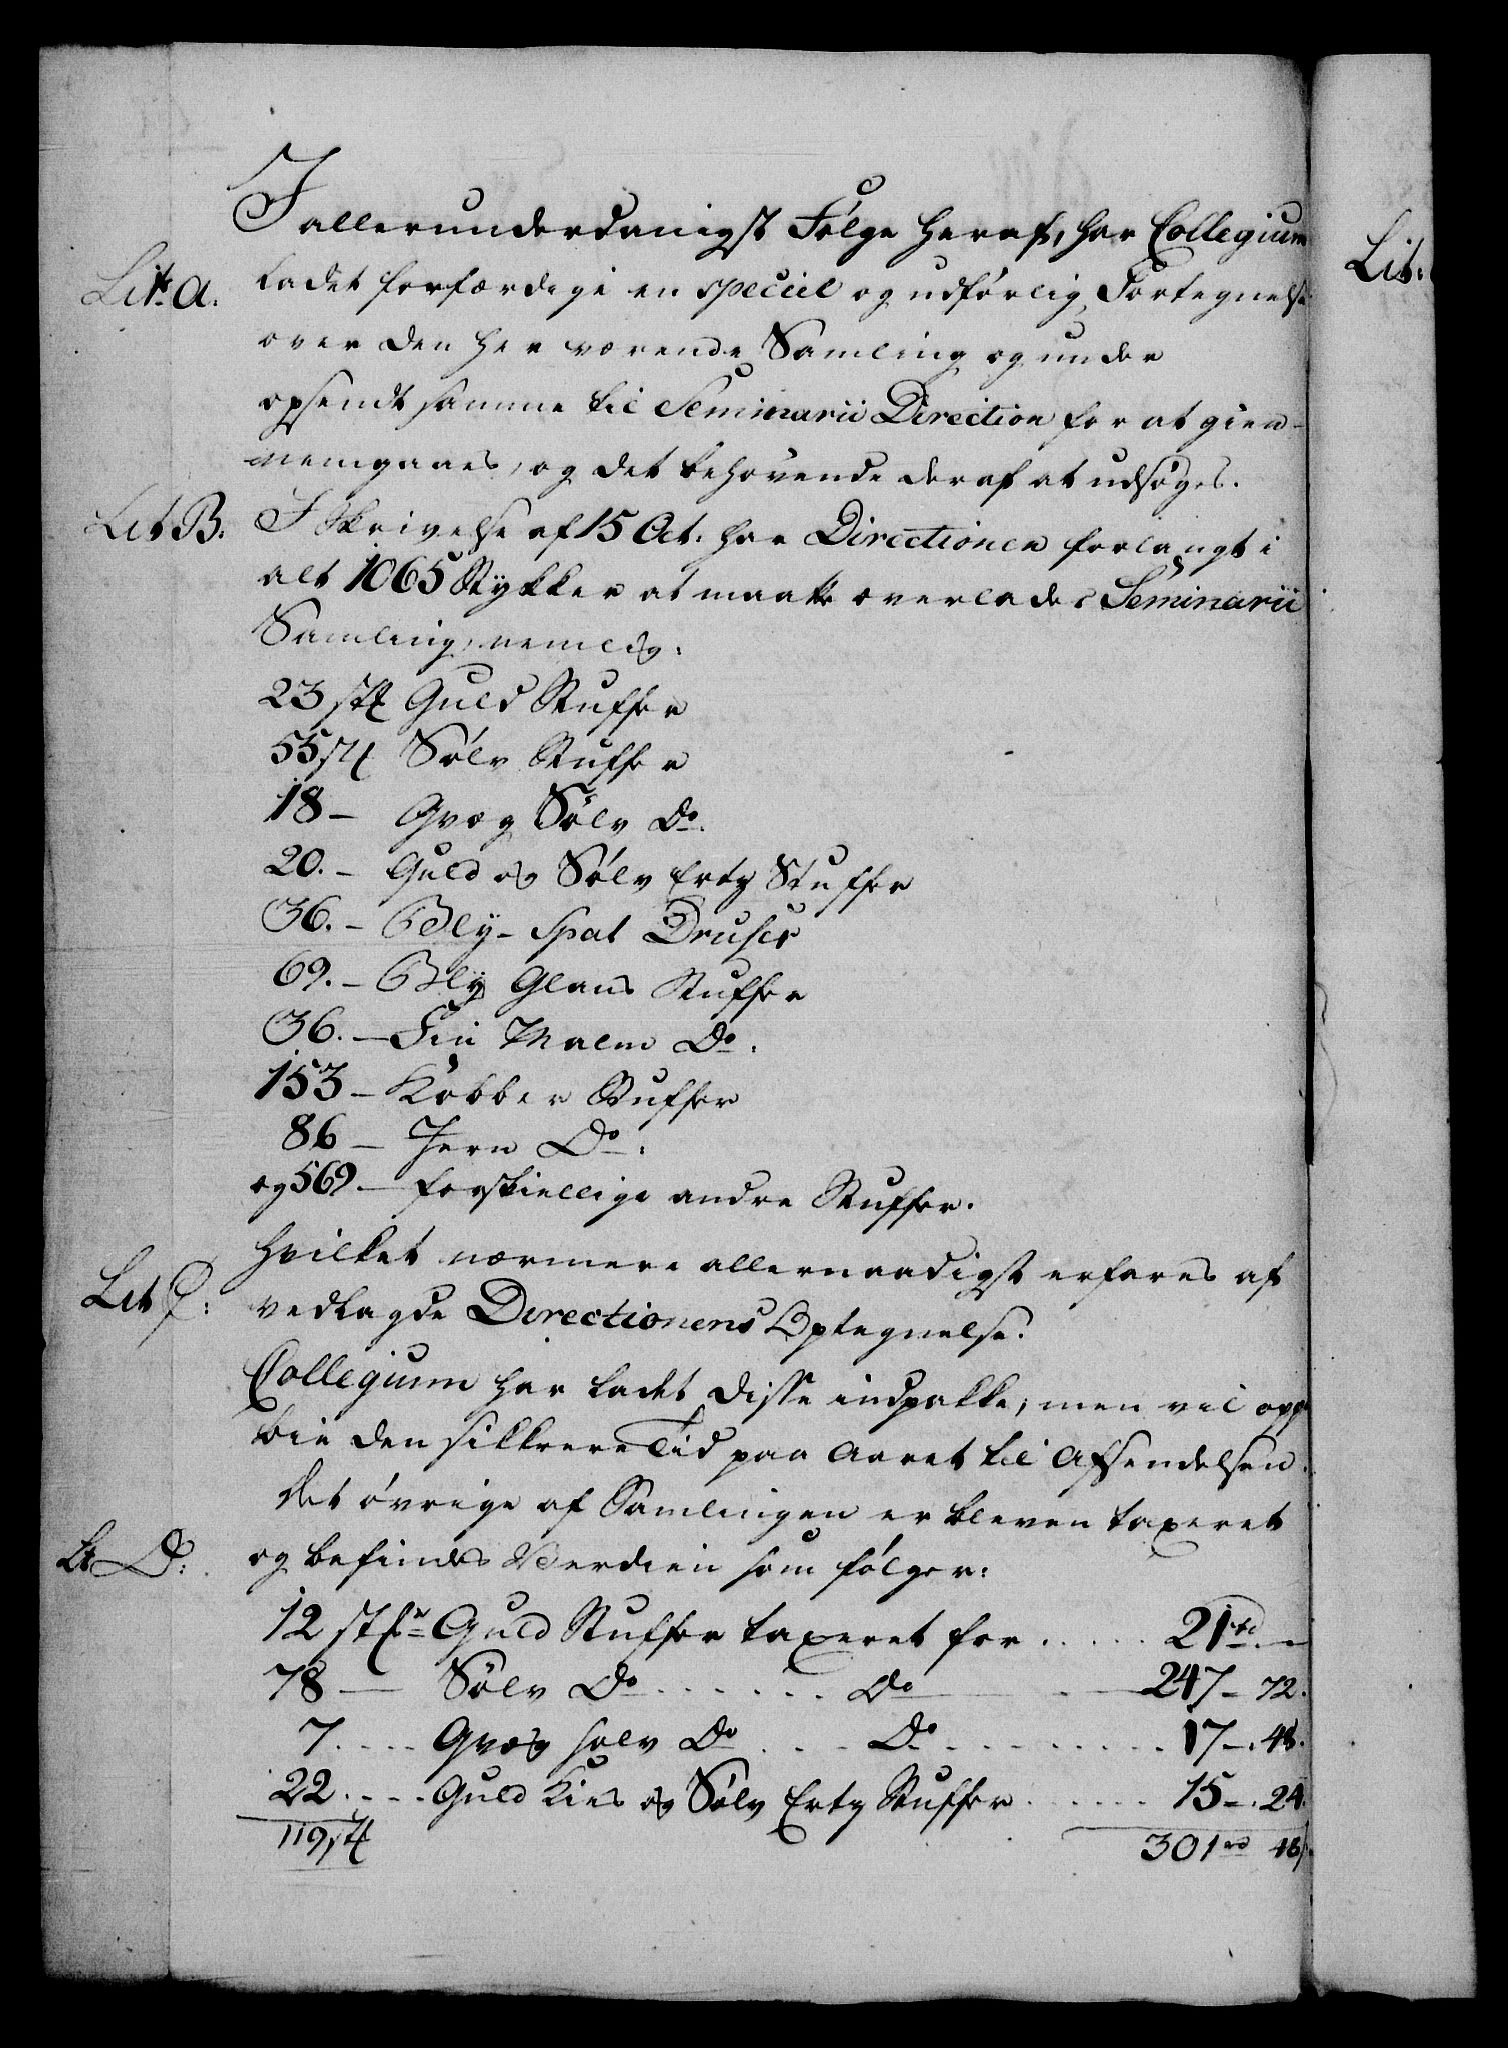 I allerunderdanigst Følge heraf, har Collegium
Lit. A. ladet forfærdige en speciel og udførlig Fortegnelse
over den her værende Samling og under
opsendt samme til Seminarii Direction for at gien-
nemgaaes, og det behøvende deraf at udsøges.
Lit B. I Skrivelse af 15 Oct: har Directionen forlangt i
alt 1065 Stykker at maatte overlades Seminarii
Samling, nemlig:
23 stk Guld Stuffer
55 stk Sølv Stuffer
18 – Gvæg Sølv Do.
20. – Guld og Sølv Ertz Stuffer
36. – Bly-Spat Druser
69. – Bly Glans Stuffer
36. – Tin Malm Do.
153 – Kobber Stuffer
86 – Jern Do:
og 569. – forskiellige andre Stuffer.
Hvilket nærmere allernaadigst erfares af
Lit C: vedlagde Directionens Optegnelse.
Collegium har ladet disse indpakke, men vil opp
bie den sikkrere Tid paa Aaret til Afsendelsen.
Det øvrige af Samlingen er bleven taxeret
Lit D: og befindes Værdien som følger:
12 stkr Guld Stuffer taxeret for ..... 21 rd. –
78 – Sølv Do ...... Do – 247 – 72.
7 .... Gvæg sølv Do ... Do ........ 17 –. 48.
22 .... Guld Kies og Sølv Ertz Stuffer ...... 15 –. 24.
119 stk 301 rd 48 s.
Lit: